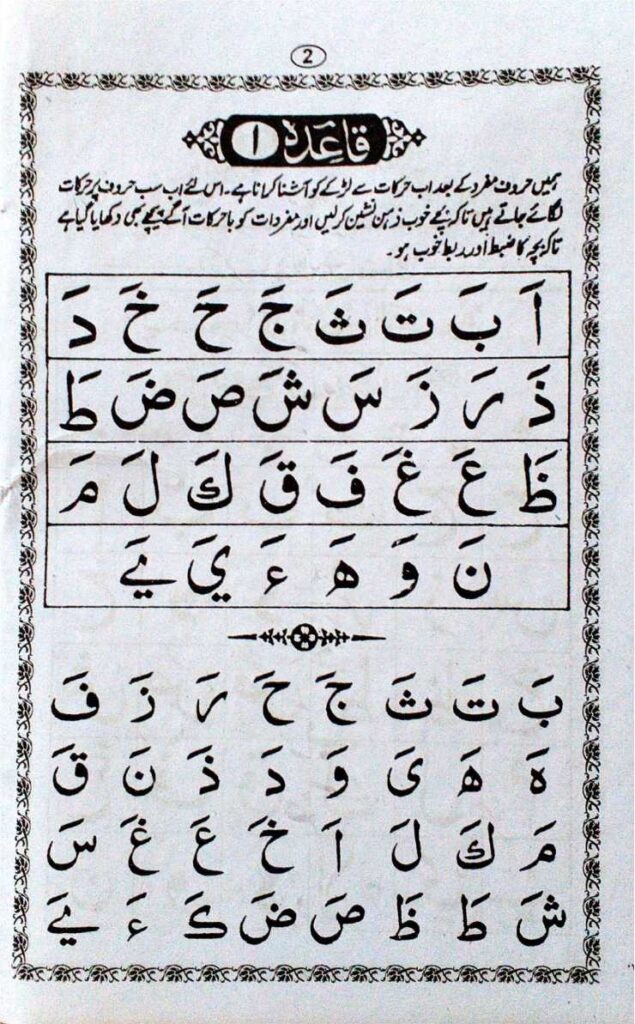 2
قاعدہ ۱
ہمیں حروف مفرد کے بعد اب حرکات سے لڑکے کو آشنا کرانا ہے۔ اس لئے اب سب حروف پر حرکات
لگائے جاتے ہیں تاکہ بچے خوب ذہن نشین کرلیں اور مفردات کو باحرکات آگے پیچھے بھی دکھایا گیا ہے
تاکہ بچہ کا ضبط اور ربط خوب ہو۔
اَ بَ تَ ثَ جَ حَ خَ دَ
ذَ رَ زَ سَ شَ صَ ضَ طَ
ظَ عَ غَ فَ قَ كَ لَ مَ
نَ وَ هَ ءَ يَ يَے
بَ تَ ثَ جَ حَ رَ زَ فَ
ہَ هَ یَ وَ دَ ذَ نَ قَ
مَ كَ لَ اَ خَ عَ غَ سَ
شَ طَ ظَ صَ ضَ کَ ءَ يَے